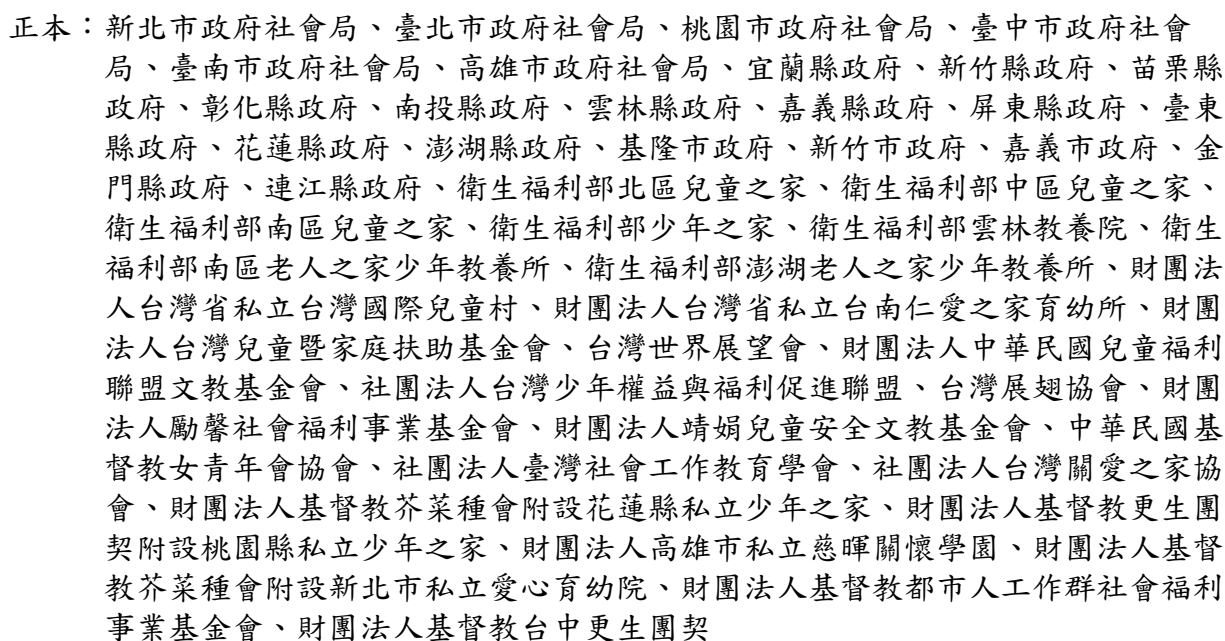 正本：新北市政府社會局、臺北市政府社會局、桃園市政府社會局、臺中市政府社會
局、臺南市政府社會局、高雄市政府社會局、宜蘭縣政府、新竹縣政府、苗栗縣
政府、彰化縣政府、南投縣政府、雲林縣政府、嘉義縣政府、屏東縣政府、臺東
縣政府、花蓮縣政府、澎湖縣政府、基隆市政府、新竹市政府、嘉義市政府、金
門縣政府、連江縣政府、衛生福利部北區兒童之家、衛生福利部中區兒童之家、
衛生福利部南區兒童之家、衛生福利部少年之家、衛生福利部雲林教養院、衛生
福利部南區老人之家少年教養所、衛生福利部澎湖老人之家少年教養所、財團法
人台灣省私立台灣國際兒童村、財團法人台灣省私立台南仁愛之家育幼所、財團
法人台灣兒童暨家庭扶助基金會、台灣世界展望會、財團法人中華民國兒童福利
聯盟文教基金會、社團法人台灣少年權益與福利促進聯盟、台灣展翅協會、財團
法人勵馨社會福利事業基金會、財團法人靖娟兒童安全文教基金會、中華民國基
督教女青年會協會、社團法人臺灣社會工作教育學會、社團法人台灣關愛之家協
會、財團法人基督教芥菜種會附設花蓮縣私立少年之家、財團法人基督教更生團
契附設桃園縣私立少年之家、財團法人高雄市私立慈暉關懷學園、財團法人基督
教芥菜種會附設新北市私立愛心育幼院、財團法人基督教都市人工作群社會福利
事業基金會、財團法人基督教台中更生團契